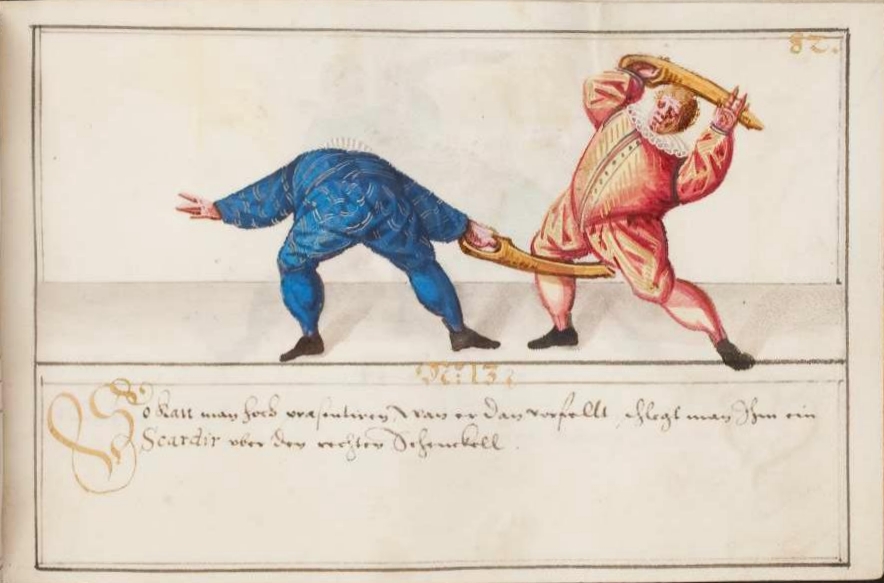 82.
No: 13.
So kan man hoch praesentiren, wan er dan vorfellt, schlegt man Ihm ein
Scardir vber den rechten Schenckell.